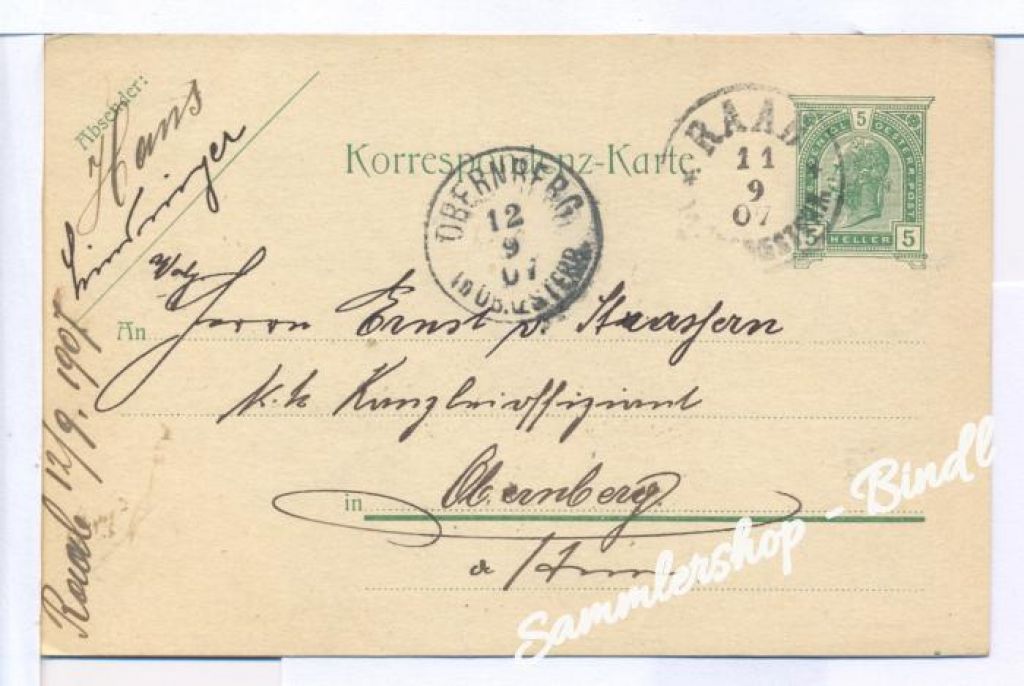 Absender:
Hans
Korrespondenz-Karte
RAAB
11
9
07
5
5 HELLER 5
OBERNBERG
12
9
07
IN OB. ÖSTERR.
Wolg.
An Herrn Ernst v. Strassern
k. k. Kanzleioffiziant
in Obernberg
a/Inn
Raab 12/9. 1907
Sammlershop - Bindl